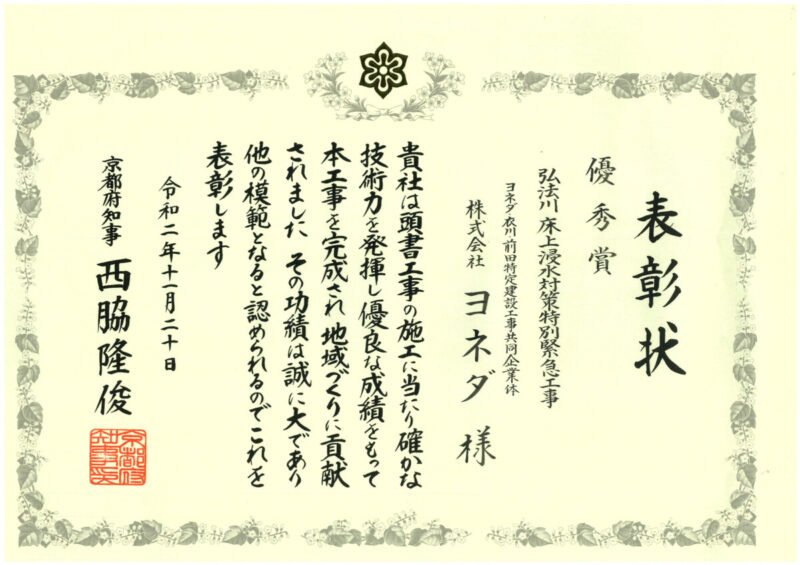 表彰状
優秀賞
弘法川 床上浸水対策特別緊急工事
ヨネダ・衣川・前田特定建設工事共同企業体
株式会社 ヨネダ 様
貴社は頭書工事の施工に当たり確かな
技術力を発揮し優良な成績をもって
本工事を完成され 地域づくりに貢献
されました その功績は誠に大であり
他の模範となると認められるのでこれを
表彰します
令和二年十一月二十日
京都府知事 西脇隆俊
京都府知事之印